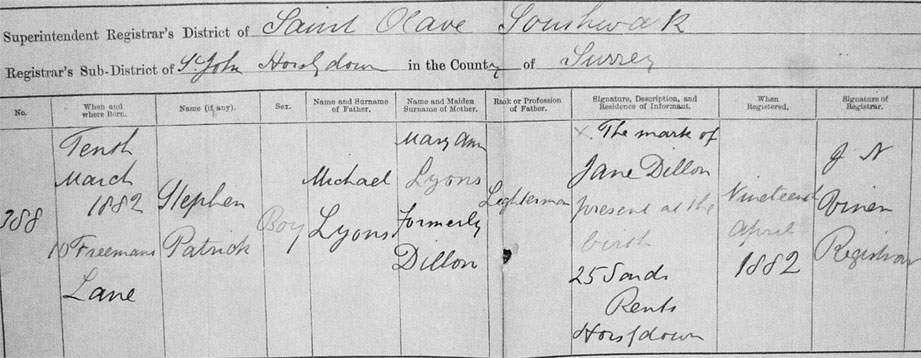 Superintendent Registrar's District of Saint Olave Southwark
Registrar's Sub-District of St John Horslydown in the County of Surrey
No.
When and
where Born.
Name (if any).
Sex.
Name and Surname
of Father.
Name and Maiden
Surname of Mother.
Rank or Profession
of Father.
Signature, Description, and
Residence of Informant.
When
Registered.
Signature of
Registrar.
388
Tenth
March
1882
10 Freemans
Lane
Stephen
Patrick
Boy
Michael
Lyons
Mary Ann
Lyons
Formerly
Dillon
Lighterman
X. The mark of
Jane Dillon
present at the
birth
25
Rents
Horslydown
Nineteenth
April
1882
J N
Viner
Registrar